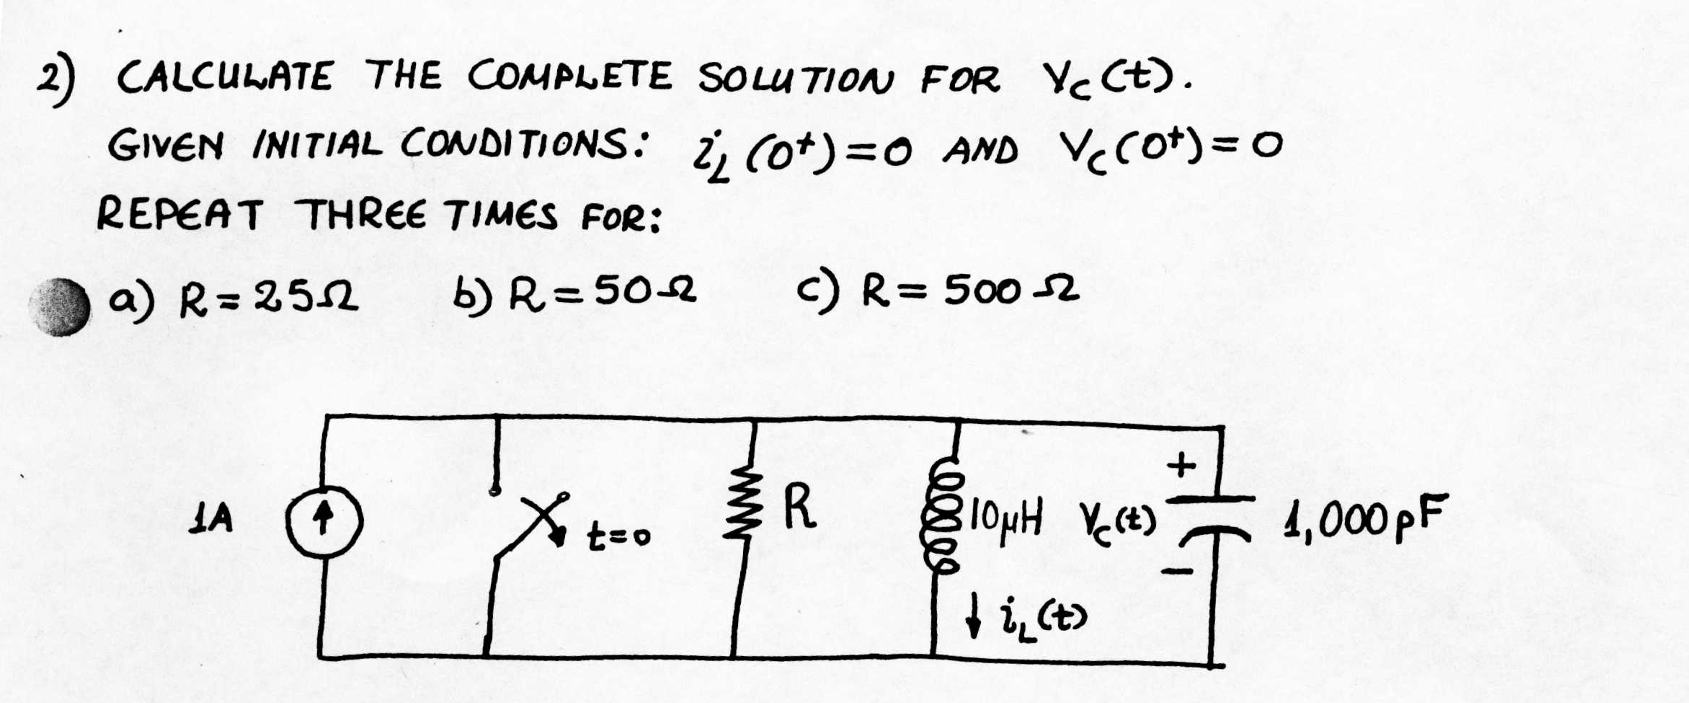 2) CALCULATE THE COMPLETE SOLUTION FOR Vc(t).
GIVEN INITIAL CONDITIONS: iL(0+)=0 AND Vc(0+)=0
REPEAT THREE TIMES FOR:
a) R=25Ω b) R=50Ω c) R=500Ω
1A t=0 R 10μH Vc(t) + − 1,000pF
iL(t)